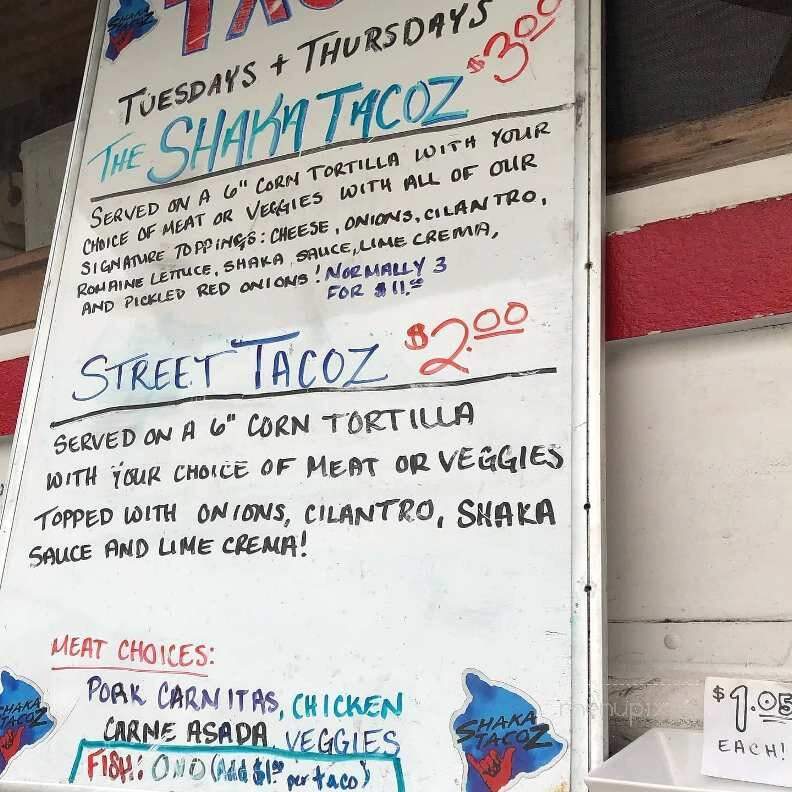 TUESDAYS + THURSDAYS
THE SHAKA TACOZ $3.00
SERVED ON A 6" CORN TORTILLA WITH YOUR
CHOICE OF MEAT OR VEGGIES WITH ALL OF OUR
SIGNATURE TOPPINGS: CHEESE, ONIONS, CILANTRO,
ROMAINE LETTUCE, SHAKA SAUCE, LIME CREMA,
AND PICKLED RED ONIONS! NORMALLY 3
FOR $11.00
STREET TACOZ $2.00
SERVED ON A 6" CORN TORTILLA
WITH YOUR CHOICE OF MEAT OR VEGGIES
TOPPED WITH ONIONS, CILANTRO, SHAKA
SAUCE AND LIME CREMA!
MEAT CHOICES:
PORK CARNITAS, CHICKEN
CARNE ASADA, VEGGIES
FISH: ONO (Add $1.00 per taco)
SHAKA
TACOZ
SHAKA
TACOZ
$1.05
EACH!
menupix